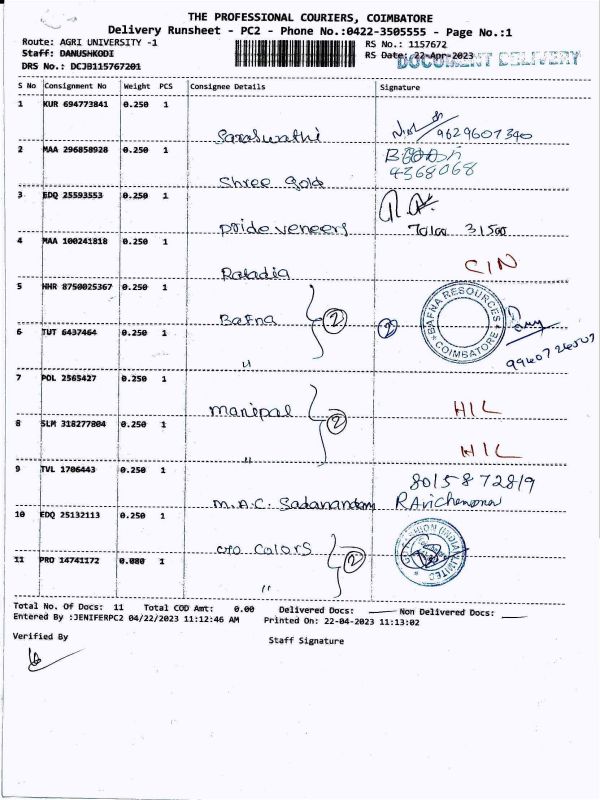 THE PROFESSIONAL COURIERS, COIMBATORE
Delivery Runsheet - PC2 - Phone No.:0422-3505555 - Page No.:1
Route: AGRI UNIVERSITY -1 RS No.: 1157672
Staff: DANUSHKODI RS Date: 22-Apr-2023
DOCUMENT DELIVERY
DRS No.: DCJB115767201
S No Consignment No Weight PCS Consignee Details Signature
1 KUR 694773841 0.250 1
Saraswathi 9629607340
2 MAA 296858928 0.250 1
Shree gold 4368068
3 EDQ 25593553 0.250 1
Pride veneers 31500
4 MAA 100241818 0.250 1
Ratadia CIN
5 HHR 8750025367 0.250 1
Bafna 2 2 BAFNA RESOURCES COIMBATORE
6 TUT 6437464 0.250 1
"
7 POL 2565427 0.250 1
Manipal 2 HIL
8 SLM 318277804 0.250 1
" HIL
9 TVL 1706443 0.250 1
8015872819
M.A.C. Sadanandam
10 EDQ 25132113 0.250 1
Colors 2 FASHION (INDIA) LIMITED
11 PRO 14741172 0.080 1
"
Total No. Of Docs: 11 Total COD Amt: 0.00 Delivered Docs: Non Delivered Docs:
Entered By :JENIFERPC2 04/22/2023 11:12:46 AM Printed On: 22-04-2023 11:13:02
Verified By Staff Signature